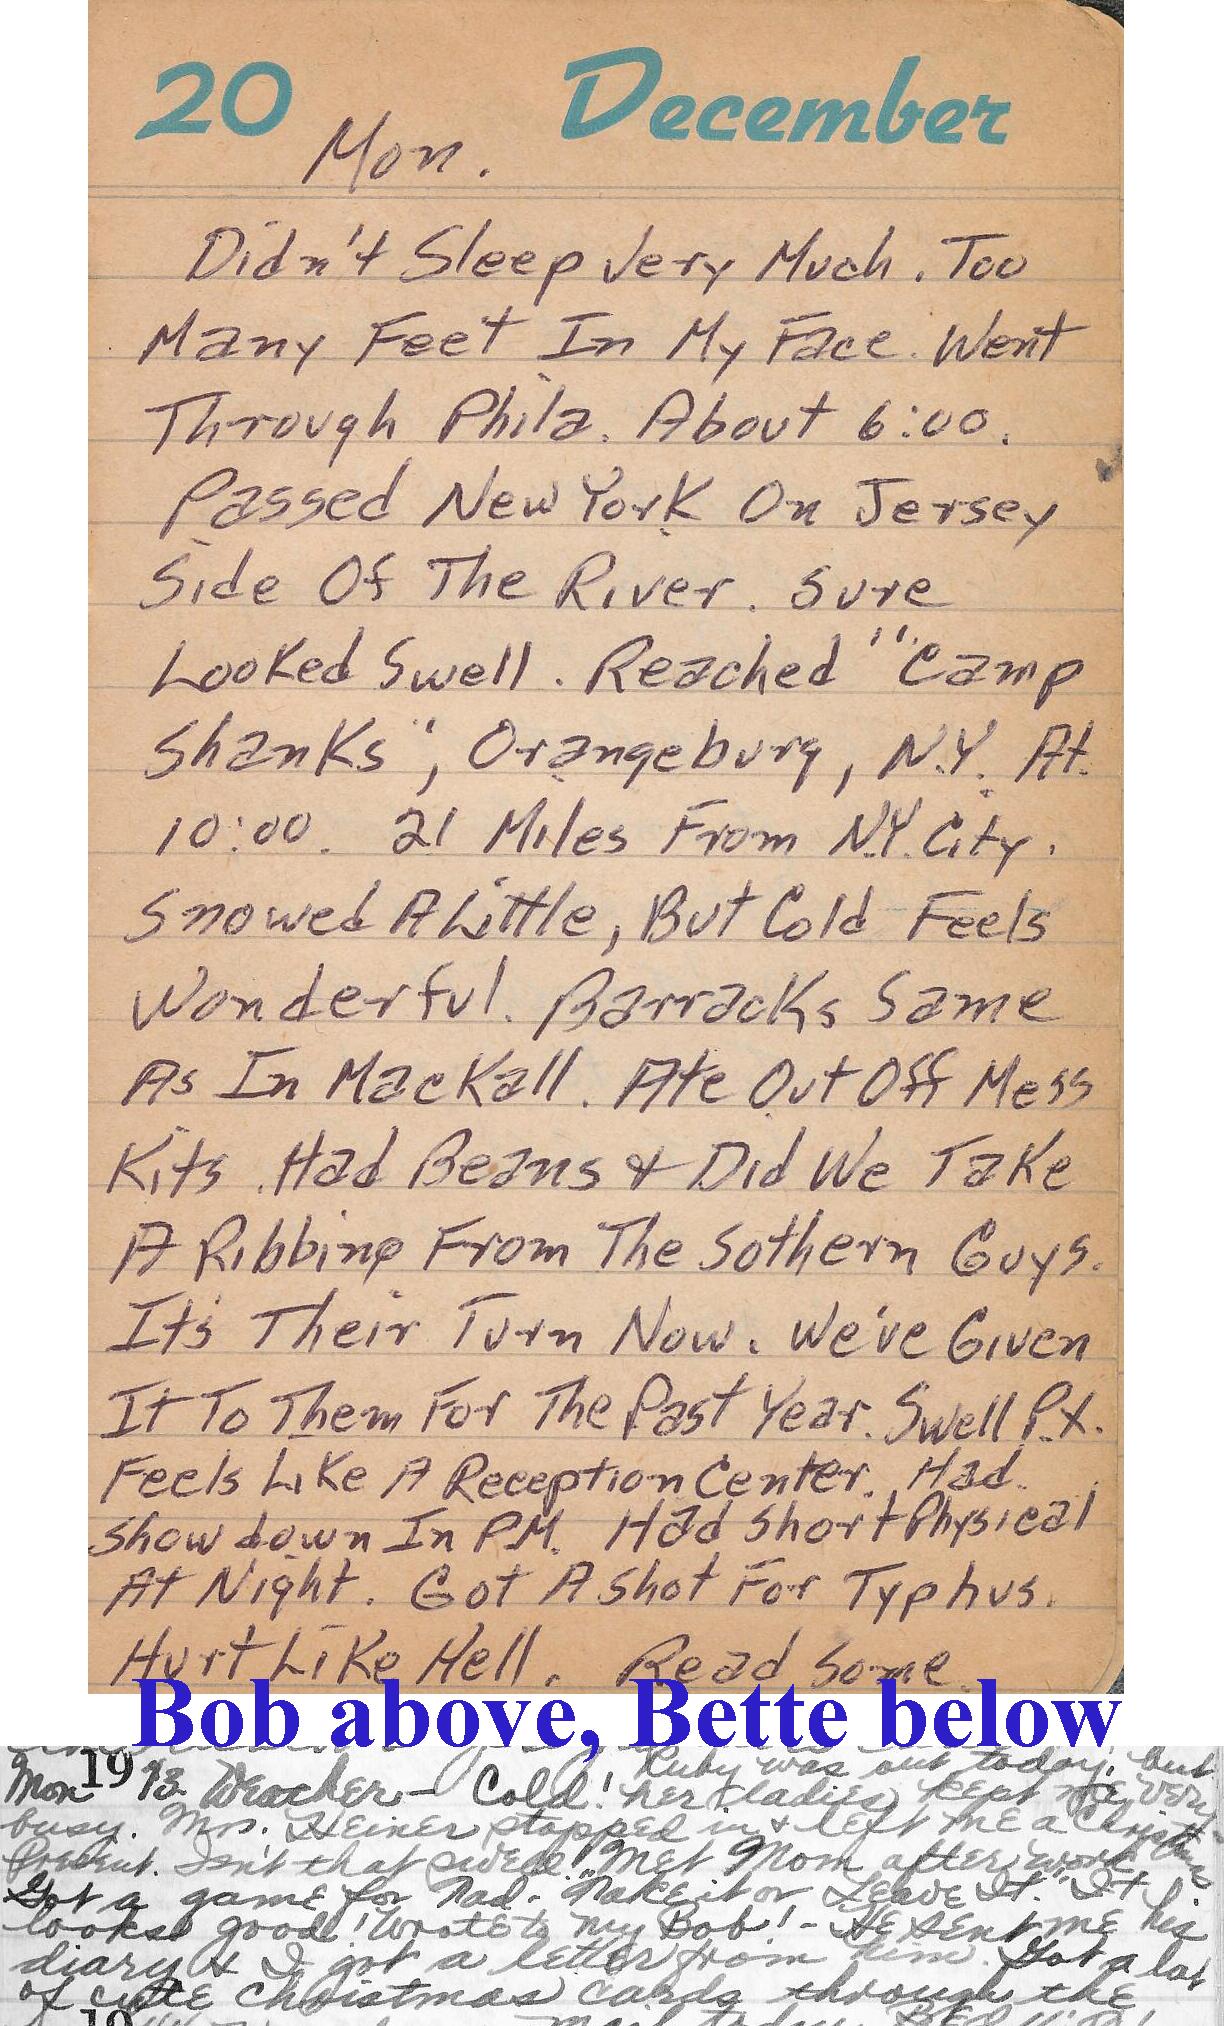 20 December
Mon.
Didn't Sleep Very Much. Too
Many Feet In My Face. Went
Through Phila. About 6:00.
Passed New York On Jersey
Side Of The River. Sure
Looked Swell. Reached "Camp
Shanks", Orangeburg, N.Y. At
10:00. 21 Miles From N.Y. City.
Snowed A Little, But Cold Feels
Wonderful. Barracks Same
As In MacKall. Ate Out Off Mess
Kits. Had Beans & Did We Take
A Ribbing From The Sothern Guys.
It's Their Turn Now. We've Given
It To Them For The Past Year. Swell P.X.
Feels Like A Reception Center. Had
Showdown In P.M. Had Short Physical
At Night. Got A Shot For Typhus.
Hurt Like Hell. Read Some
Bob above, Bette below
Ruby was out today, but
Mon 19 43 Weather - Cold! her ladies kept me very
busy. Mrs. Heiner stopped in & left me a Christmas
Present. Isn't that swell! Met Mom after work
Got a game for Dad. "Make it or Leave It." It
looks good! Wrote to my Bob! - He sent me his
diary & I got a letter from him. Got a lot
of cute Christmas cards through the
mail today.
19